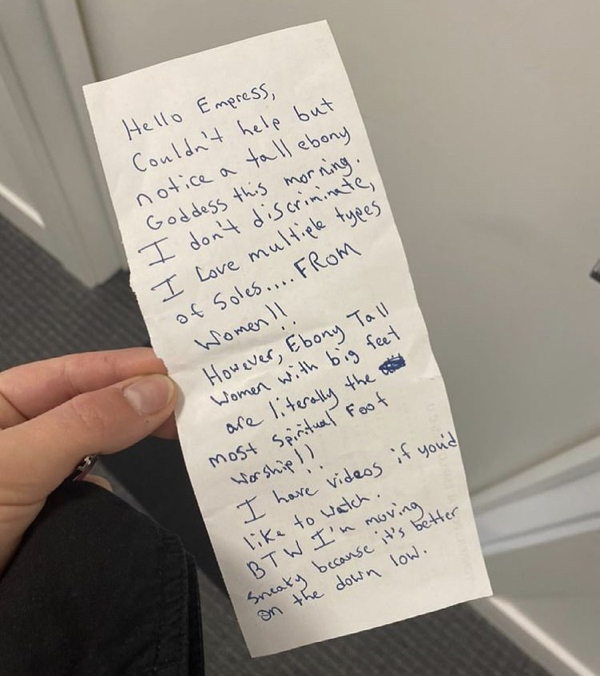 Hello Empress,
Couldn't help but
notice a tall ebony
Goddess this morning.
I don't discriminate,
I Love multiple types
of Soles.... FROM
Women!!
However, Ebony Tall
Women with big feet
are literally the
most Spiritual Foot
Worship!!
I have videos if you'd
like to watch.
BTW I'm moving
sneaky because it's better
on the down low.